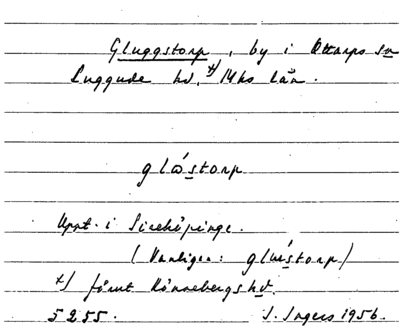 Gluggstorp, by i Ottarps sn
Luggude hd. +) Mhs län.
glåstorp
Uppt. i Sireköpinge.
(Vanligen: glustorp)
+) förut Rönnebergs hd.
5255. I. Ingers 1956.